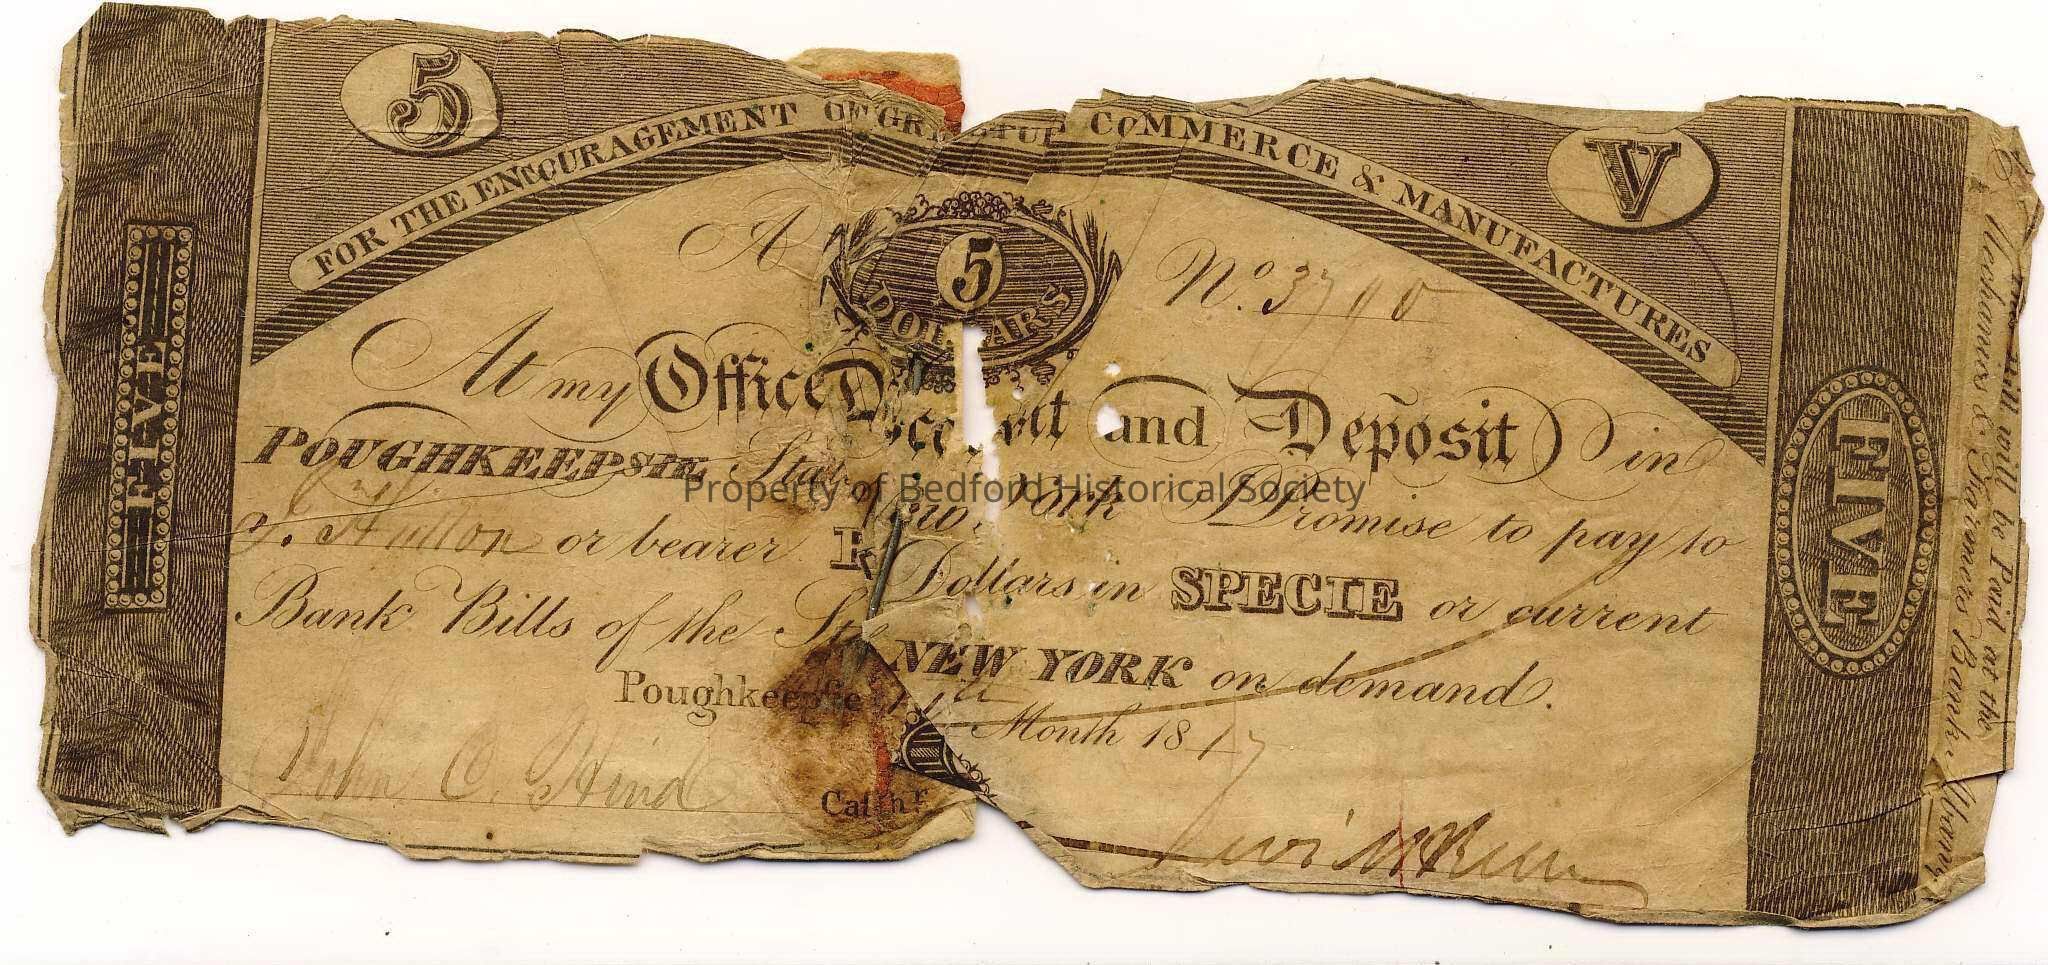 5
V
FOR THE ENCOURAGEMENT OF COMMERCE & MANUFACTURES
A
5
DOLLARS
No. 3790
At my Office Discount and Deposit) in
POUGHKEEPSIE State New York Promise to pay to
or bearer Dollars in SPECIE or current
Bank Bills of the NEW YORK on demand.
Poughkeepsie Month 1817
John C.
Levi McKeen
FIVE
FIVE
bill will be Paid at the
Mechanics & Farmers Bank Albany
Property of Bedford Historical Society